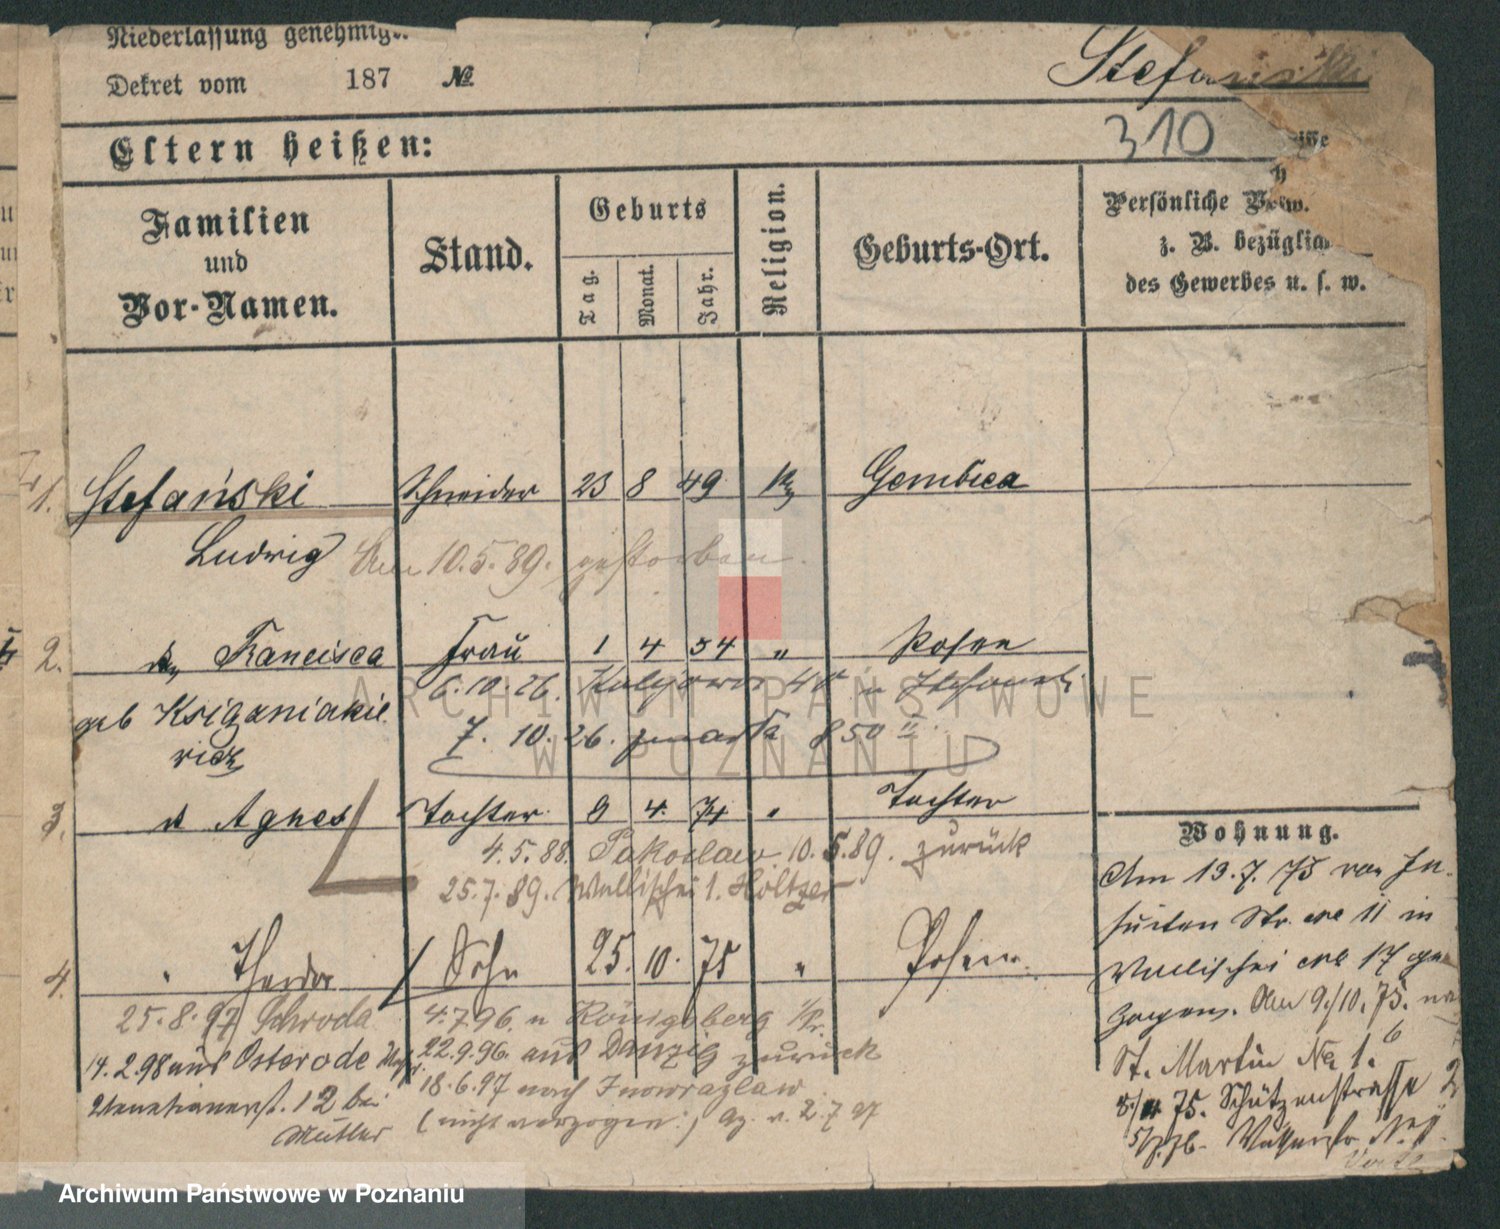 Niederlassung genehmigt
Dekret vom 187 №
Stefański
310
Eltern heißen:
Familien
und
Vor-Namen.
Stand.
Geburts
Tag.
Monat.
Jahr.
Religion.
Geburts-Ort.
Persönliche
z. B. bezüglich
des Gewerbes u. s. w.
1. Stefański Schneider 23 8 49 Gembica
Ludwig Am 10.5.89. gestorben.
2. Francisca Frau 1 4 54 " Posen
6.10.26.
geb
7. 10. 26. zmarła 850 II
ARCHIWUM PAŃSTWOWE
W POZNANIU
3. Agnes Tochter 9 4. 74 " Tochter
4.5.88. Pakoslaw 10.5.89. zurück
25.7.89. Wallischei 1. Höltzer
4. " Theodor Sohn 25. 10. 75 " Posen.
25.8.97 Schroda 4.7.96. n Königsberg i/Pr.
14.2.98 aus Osterode 22.9.96. aus Danzig zurück
18.6.97 nach Inowrazlaw
12 bei
Mutter (nicht verzogen.)
Wohnung.
Am 13.7.75 von Je-
suiten Str. No 11 in
Wallischei No 17 ge-
zogen. Am 9./10.75. na
St. Martin No 1.6
75. Schützenstrasse 2
Archiwum Państwowe w Poznaniu